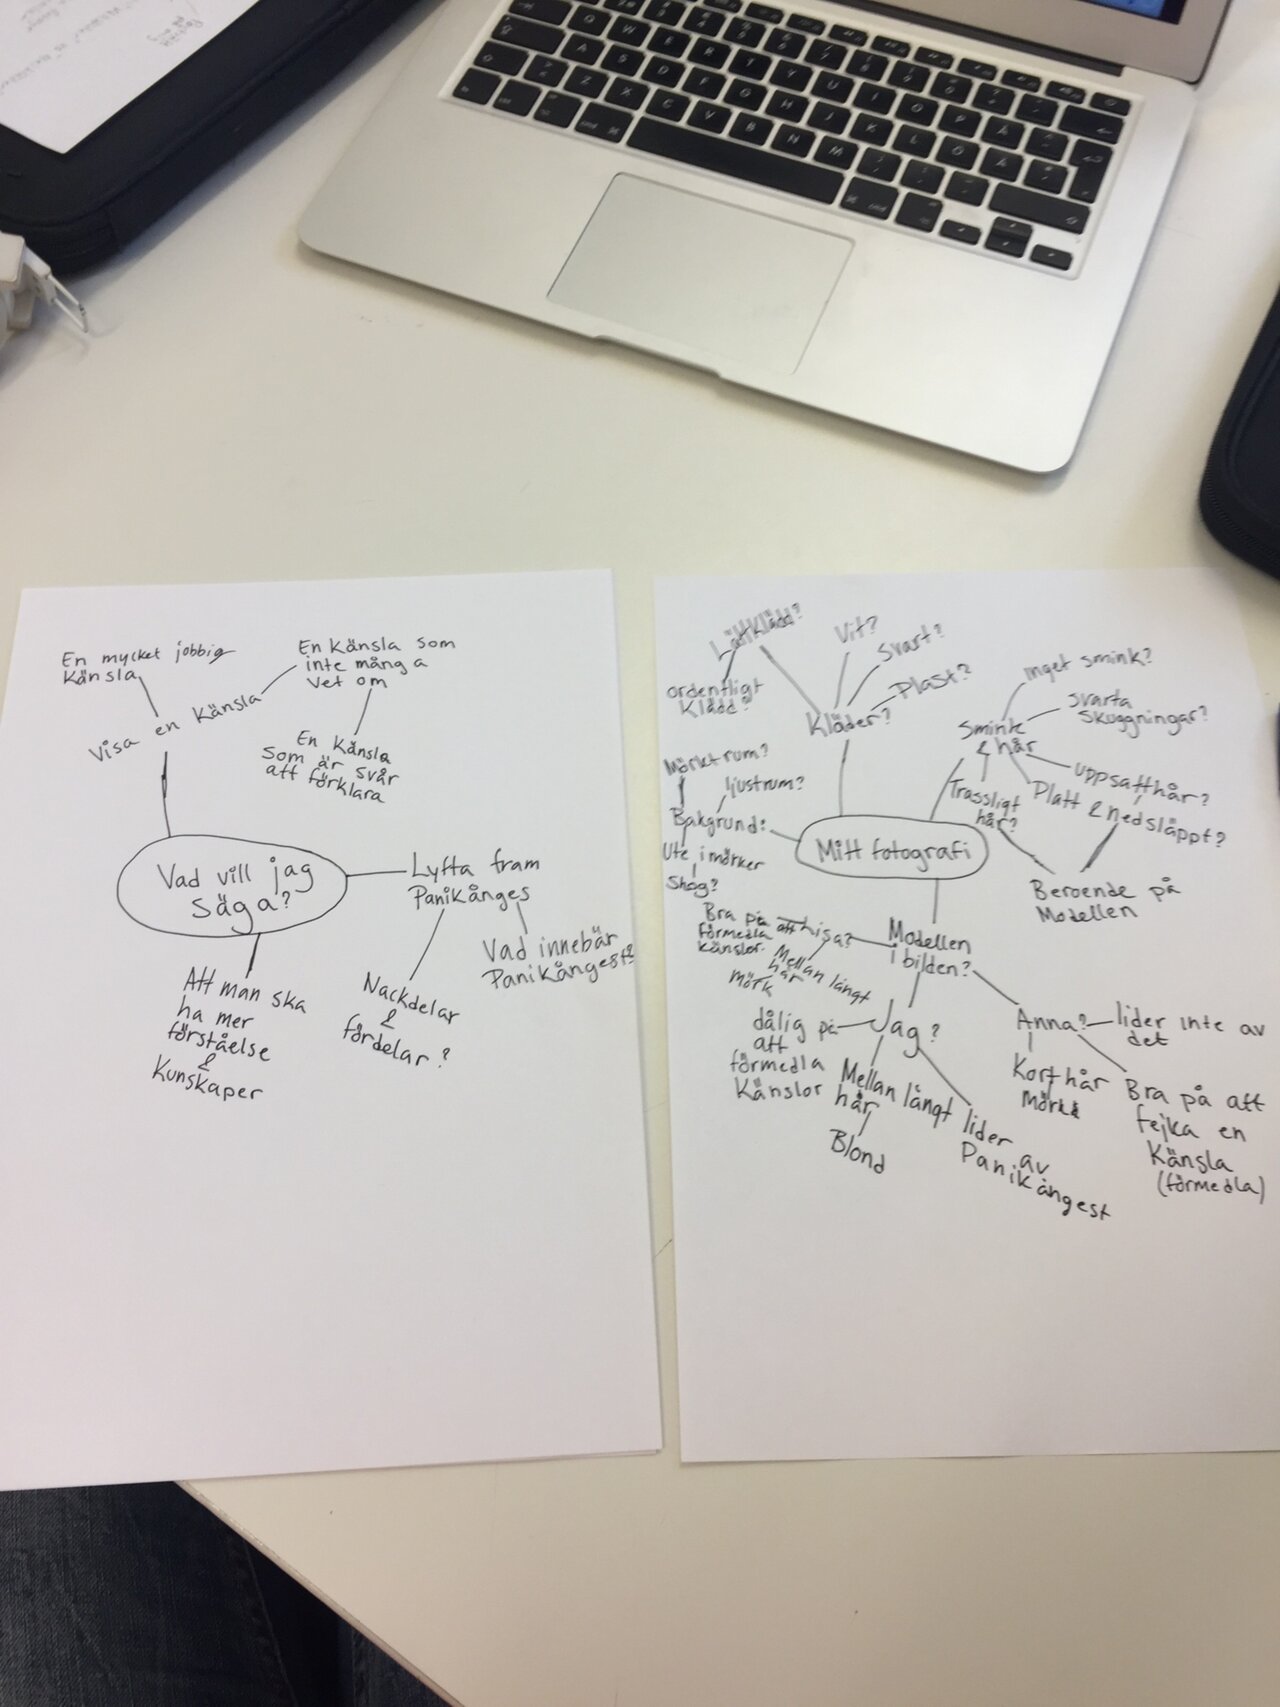 En mycket jobbig
Känsla
En Känsla som
inte många
vet om
Visa en Känsla
En Känsla
som är svår
att förklara
Vad vill jag
säga?
Lyfta fram
Panikånges
Vad innebär
Panikångest?
Nackdelar
&
fördelar?
Att man ska
ha mer
förståelse
&
Kunskaper
Lättklädd?
Vit?
Svart?
Plast?
ordentligt
Klädd?
Kläder?
inget smink?
svarta
skuggningar?
Smink
& hår
uppsatt hår?
Platt & nedsläppt?
Trassligt
hår?
Beroende på
Modellen
Mörkt rum?
ljust rum?
Bakgrund:
Ute i mörker
Skog?
Mitt fotografi
Modellen
i bilden?
Bra på att
förmedla
känslor.
Mellan långt
hår
mörk
Jag?
dålig på
att
förmedla
Känslor
Mellan långt
hår
Blond
lider av
Panikångest
Anna?
lider inte av
det
Kort hår
Mörk
Bra på att
fejka en
Känsla
(förmedla)